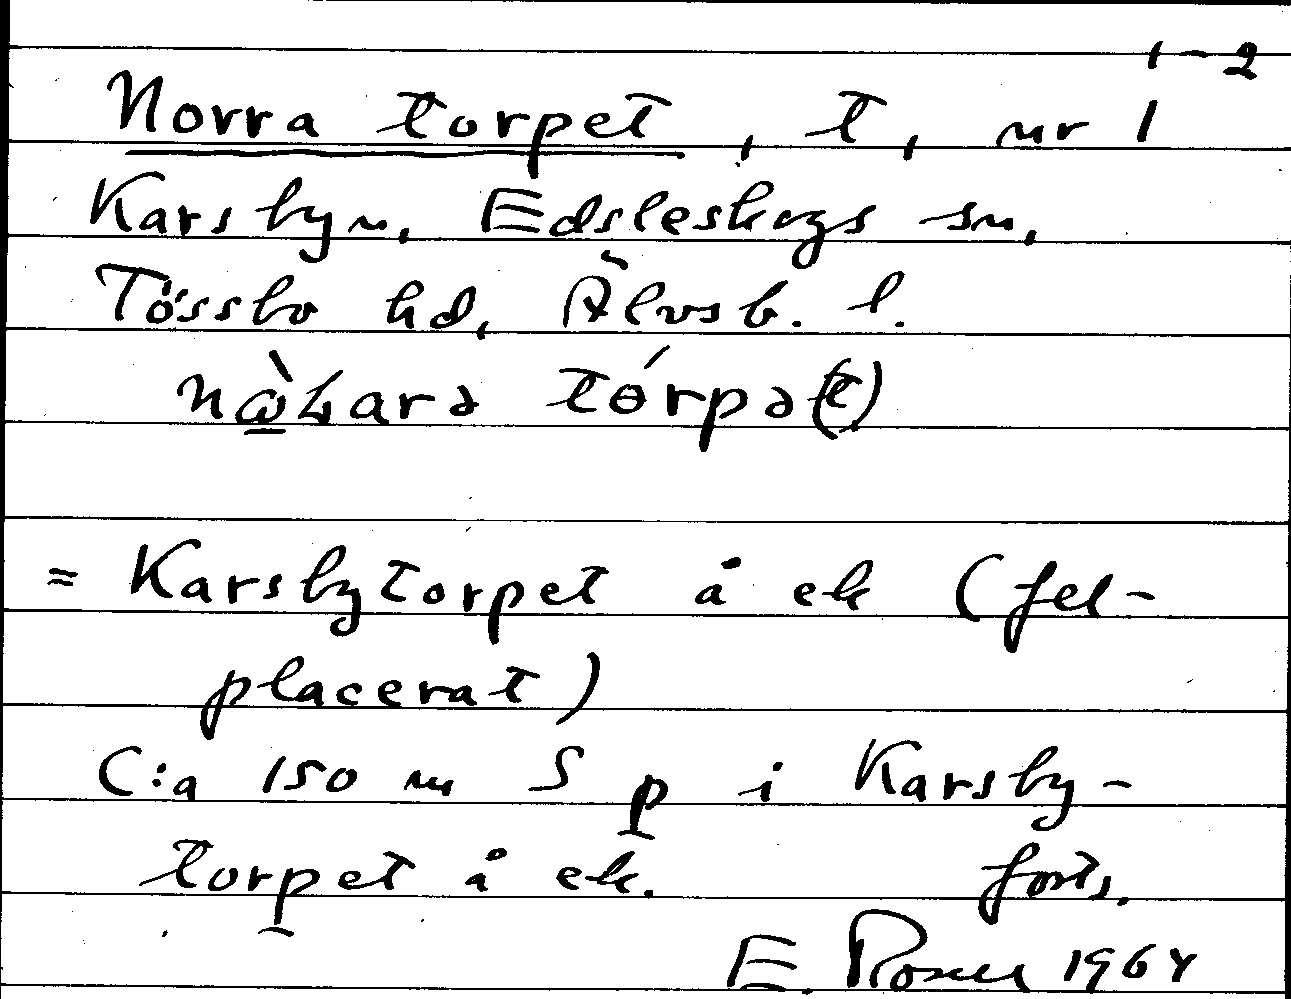 1-2
Norra torpet, t, nr 1
Karsbyn, Edsleskogs sn,
Tössbo hd, Älvsb. l.
tórpə(t)
= Karsbytorpet å ek (fel-
placerat)
C:a 150 m S p i Karsby-
torpet å ek. forts.
E. Rosell 1964